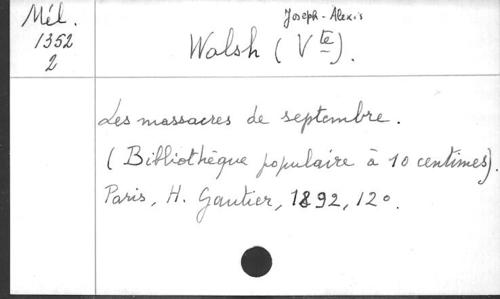 Mél.
1352
2
Joseph-Alexis
Walsh (Vte).
Les massacres de septembre.
(Bibliothèque populaire à 10 centimes).
Paris, H. Gautier, 1892, 12o.